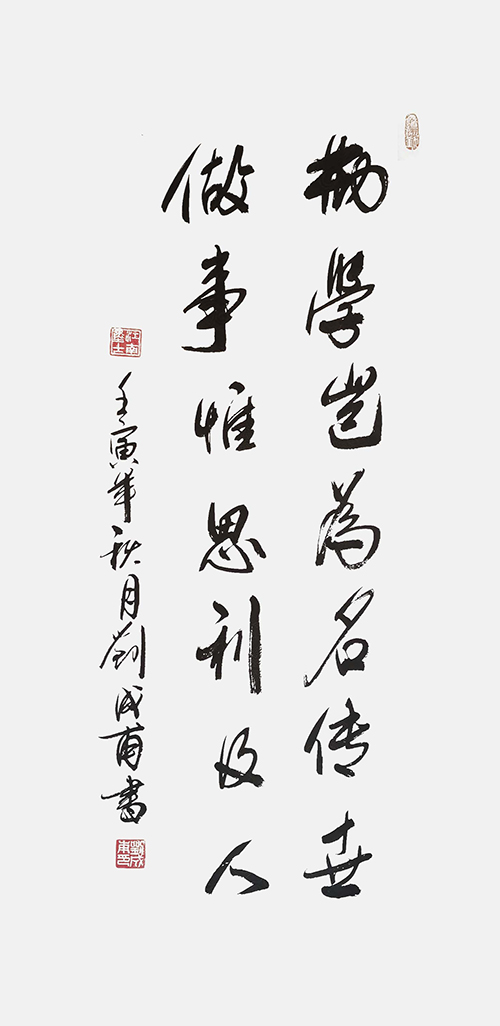 勤學豈為名傳世
做事惟思利及人
壬寅年秋月劉成書